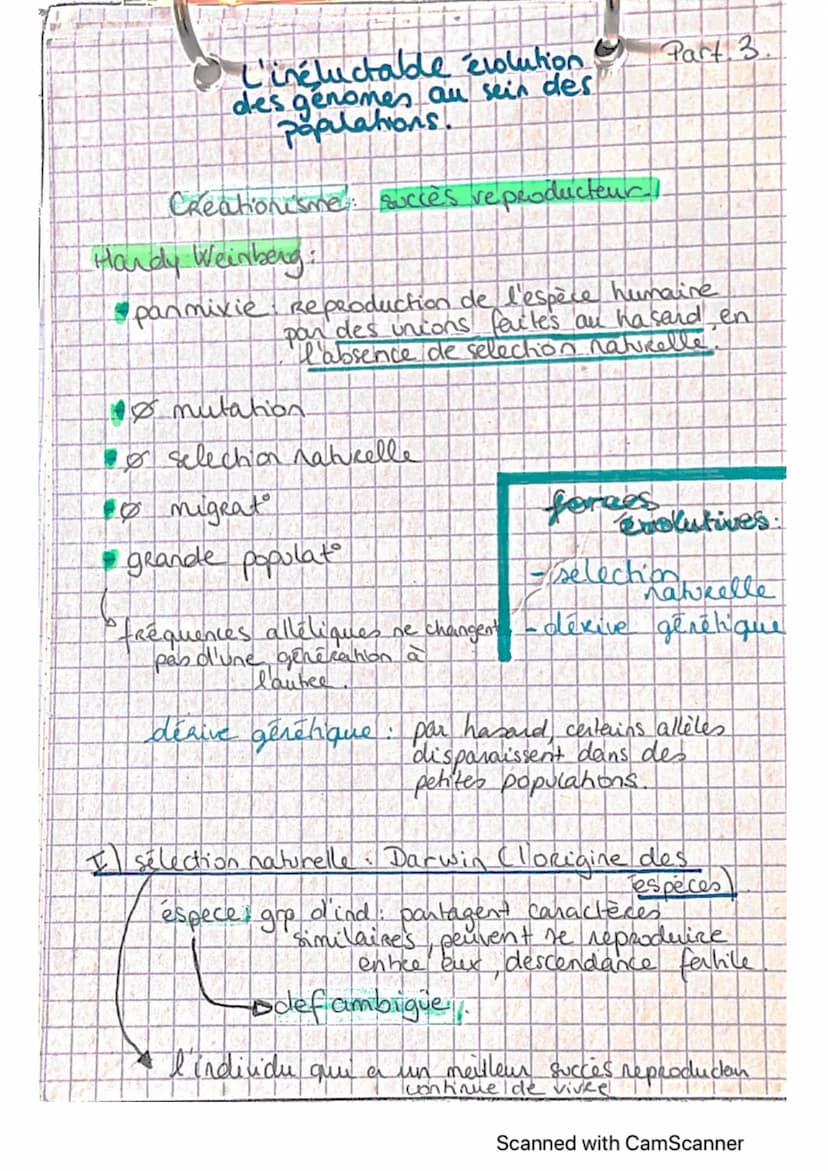 Part. 3.
L'inéluctable évolution
des génomes au sein des
populations.
Créationisme: succès reproducteur
Hardy Weinberg:
panmixie: Reproduction de l'espèce humaine
par des unions faites au hasard, en
l'absence de selection naturelle.
Ø mutation
Ø selection naturelle
Ø migrat°
grande populat°
forces
évolutives:
- selection
naturelle
- dérive génétique
fréquences alléliques ne changent
pas d'une génération à
l'autre.
dérive génétique: par hasard, certains allèles
disparaissent dans des
petites populations.
I) sélection naturelle: Darwin (l'origine des
espèces)
éspece: grp d'ind: partagent caractères
similaires, peuvent se reproduire
entre eux, descendance fertile
def ambigüe
l'individu qui a un meilleur succès reproducteur
continue de vivre
Scanned with CamScanner